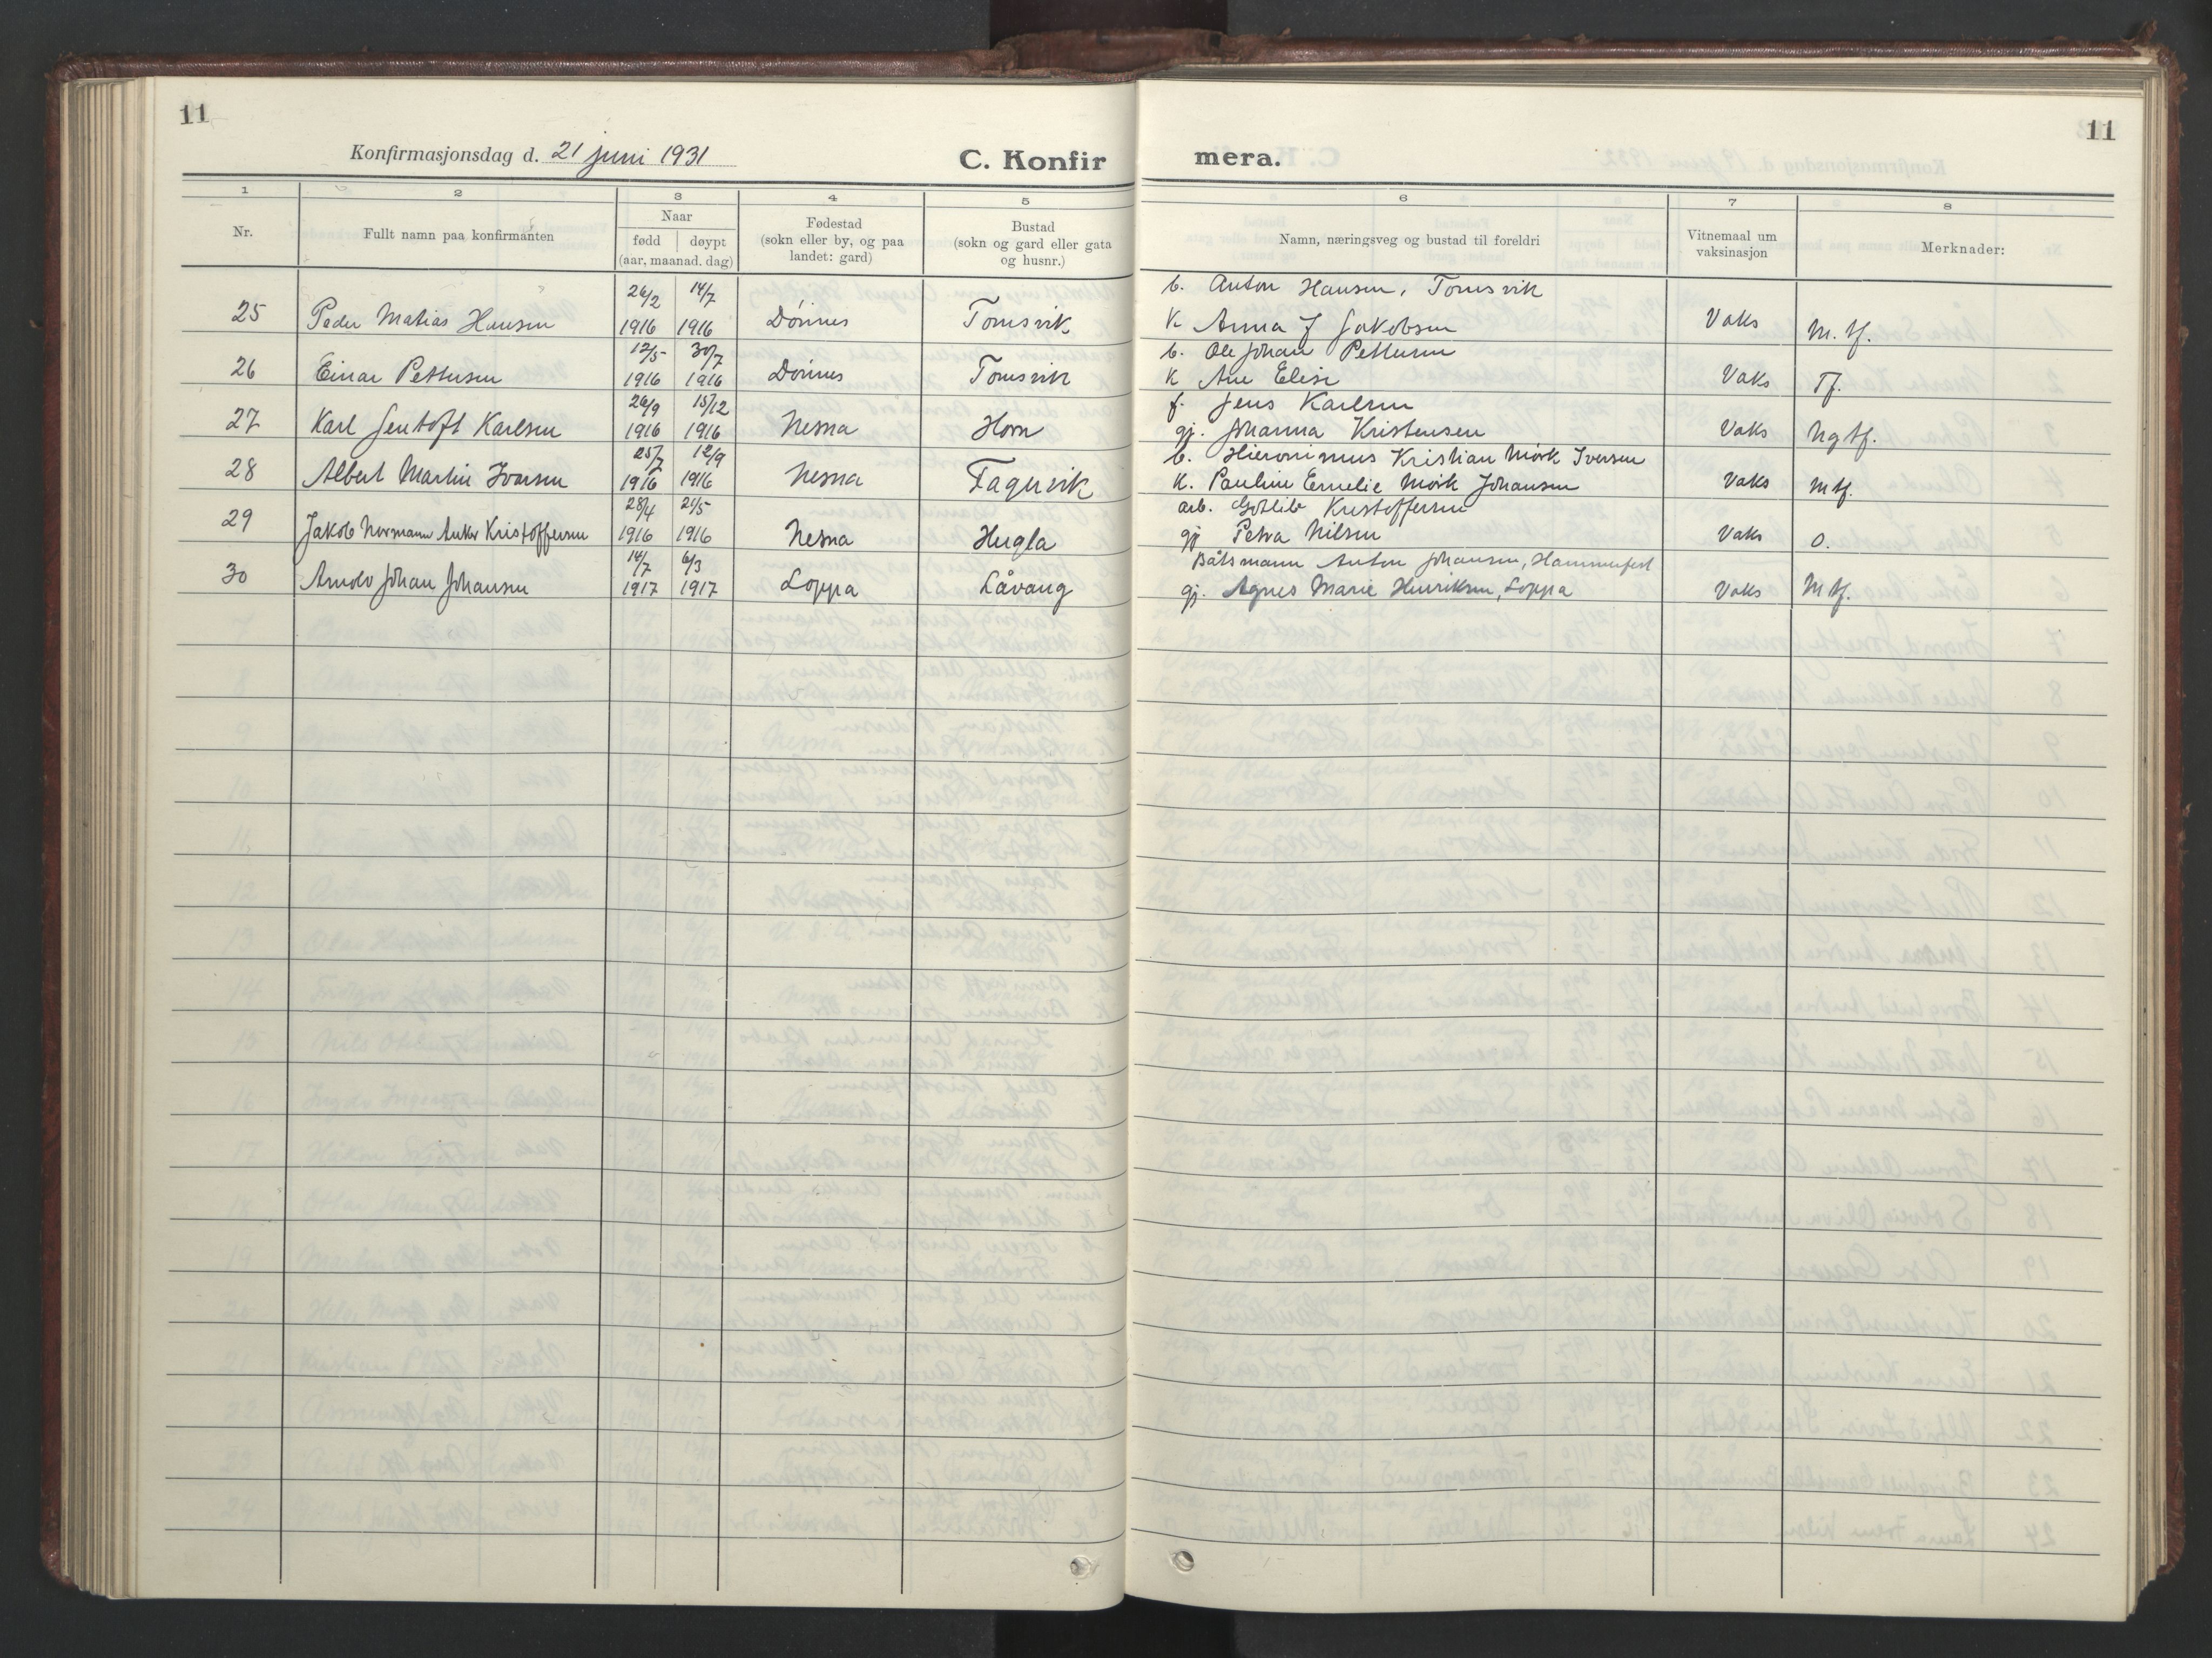 11
11
Konfirmasjonsdag d. 21 juni 1931
C. Konfirmera.
1 2 3 4 5 6 7 8
Nr.
Fullt namn paa konfirmanten
Naar
fødd døypt
(aar, maanad. dag)
Fødestad
(sokn eller by, og paa
landet: gard)
Bustad
(sokn og gard eller gata
og husnr.)
Namn, næringsveg og bustad til foreldri
Vitnemaal um
vaksinasjon
Merknader:
26/2 14/7 b. Anton Hansen, Tomsvik
25 Peder Matias Hansen 1916 1916 Dönnes Tomsvik K Anna J Jakobsen Vaks M. tf.
12/5 30/7 b. Ole Johan Pettersen
26 Einar Pettersen 1916 1916 Dönnes Tomsvik K Ane Elise Vaks Tf.
26/9 15/12 f. Jens Karlsen
27 Karl Jentoft Karlsen 1916 1916 Nesna Horn gj. Johanna Kristensen Vaks Ng tf.
25/7 12/9 b. Hieronimus Kristian Mörk Iversen
28 Albert Martin Iversen 1916 1916 Nesna Fagervik K. Pauline Emelie Mörk Johansen Vaks M tf.
28/4 21/5 arb. Gotlib Kristoffersen
29 Jakob Normann Anker Kristoffersen 1916 1916 Nesna Hugla gj Petra Nilsen Vaks O.
14/7 6/3 Båtsmann Anton Johansen, Hammerfest
30 Arnolv Johan Johansen 1917 1917 Loppa Låvang gj. Agnes Marie Henriksen, Loppa Vaks M tf.